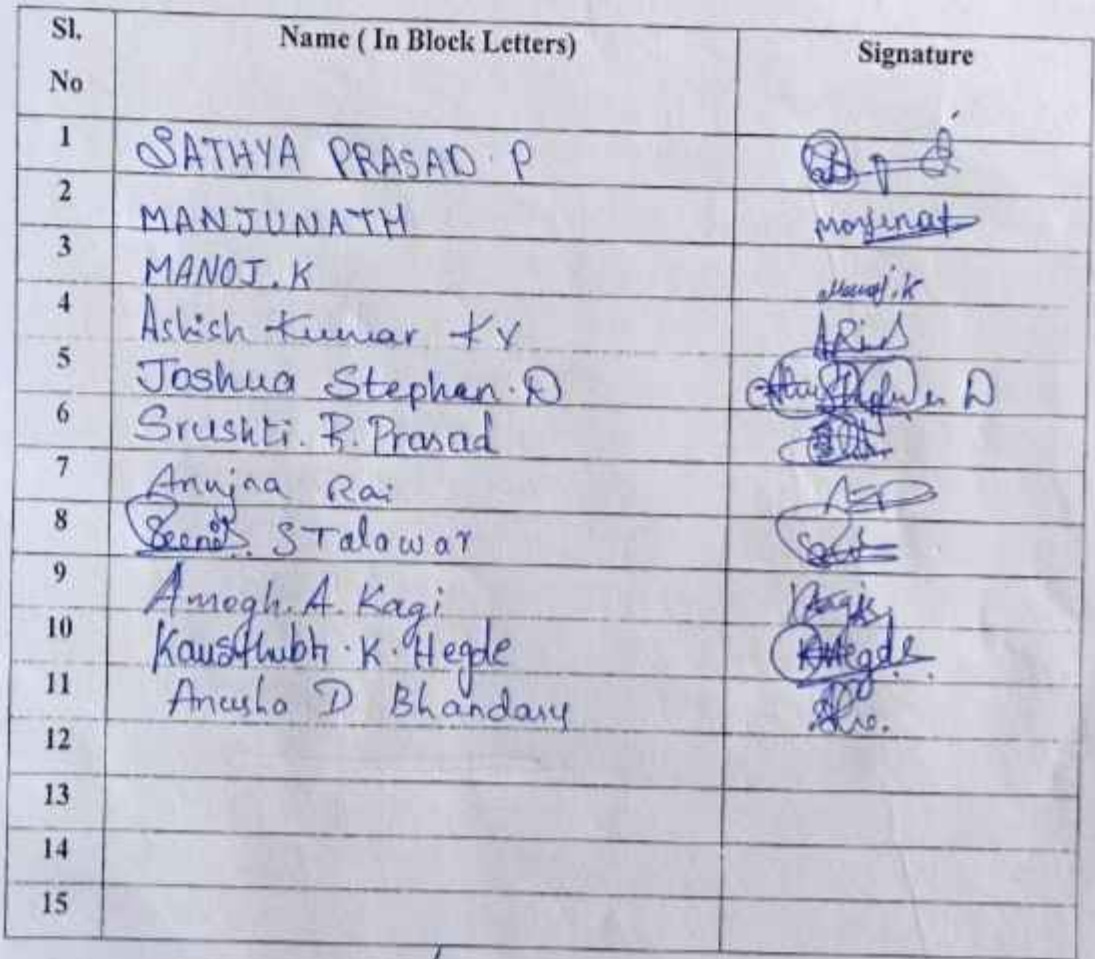 Sl. No Name ( In Block Letters) Signature
1 SATHYA PRASAD. P
2 MANJUNATH
3 MANOJ. K Manoj.K
4 Ashish Kumar K V
5 Joshua Stephen. D
6 Srushti. R. Prasad
7 Anujna Rai
8 S Talawar
9 Amogh. A. Kagi
10 Kausthubh. K. Hegde KHegde
11 Anusha D Bhandary
12
13
14
15